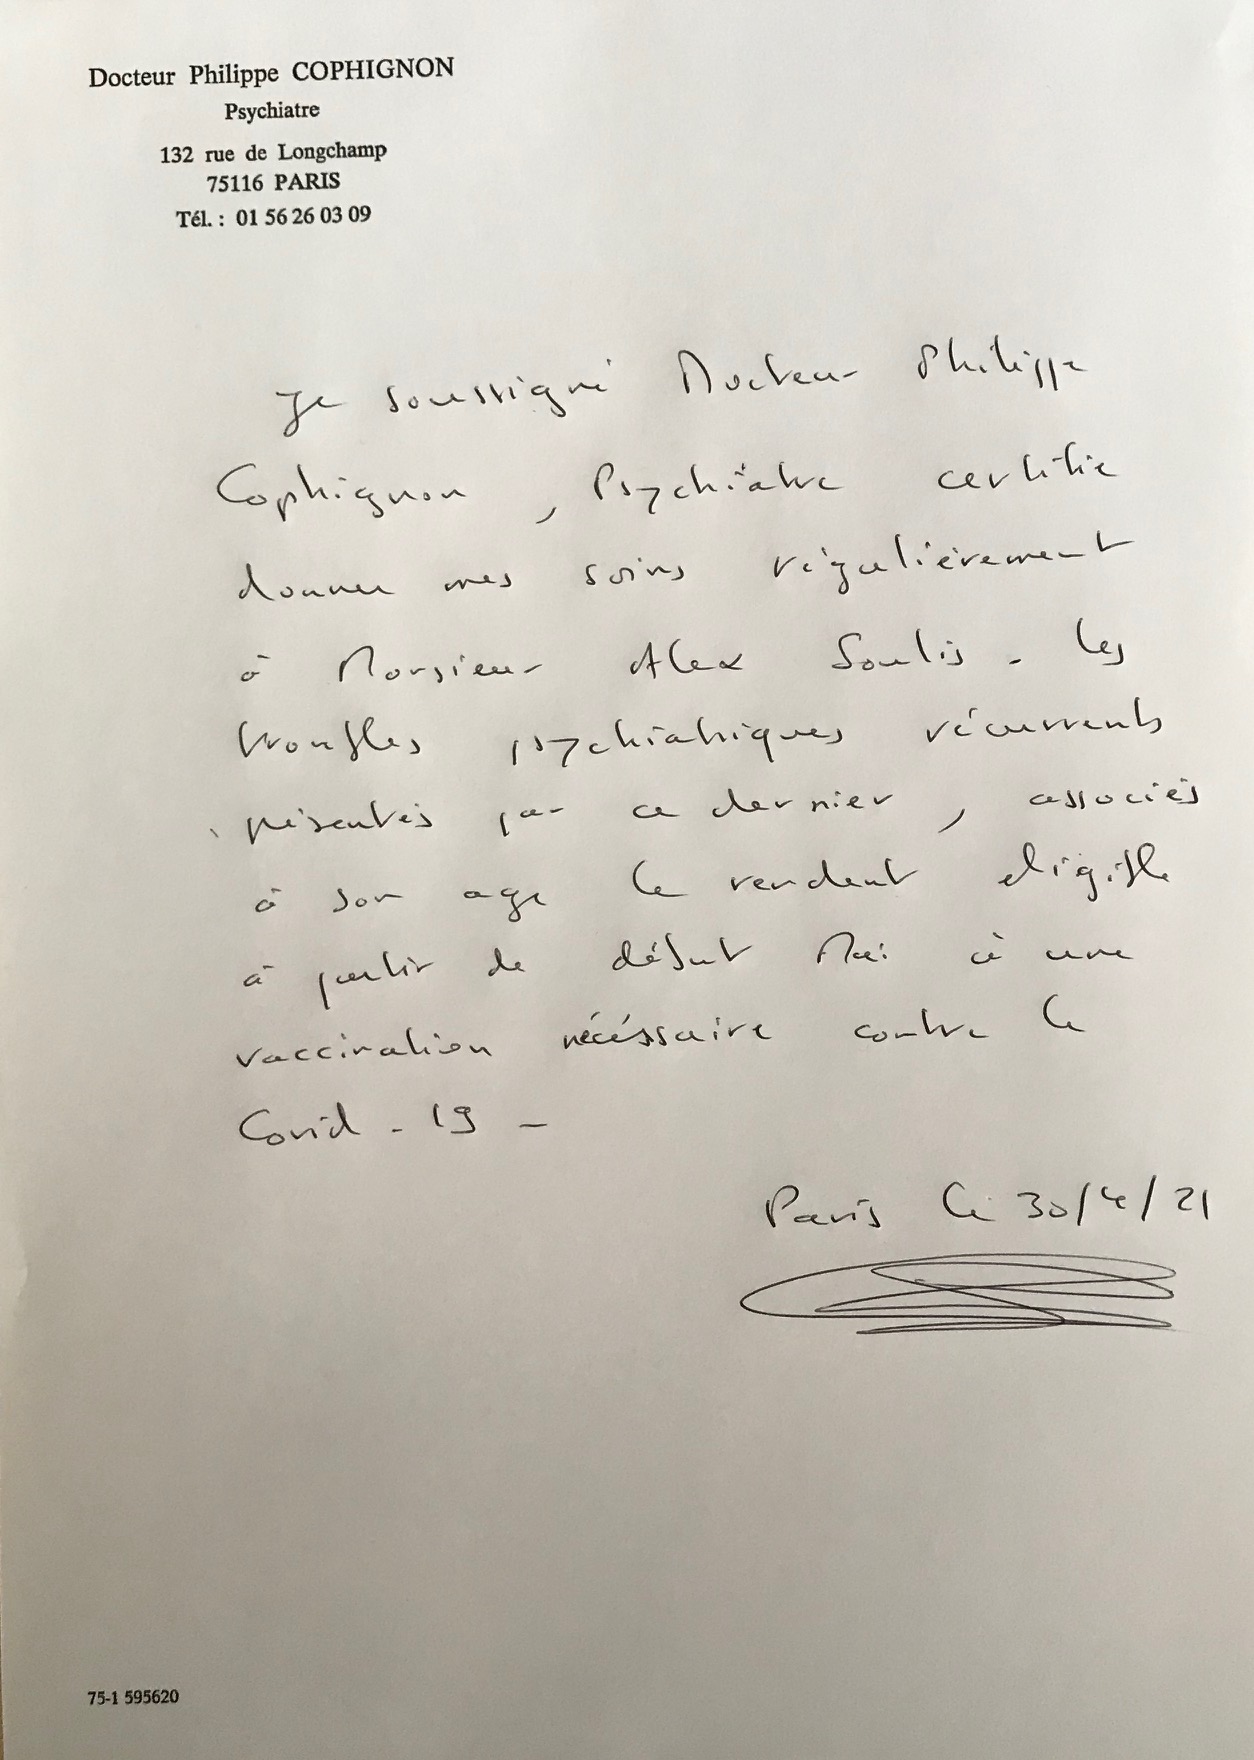 Docteur Philippe COPHIGNON
Psychiatre
132 rue de Longchamp
75116 PARIS
Tél. : 01 56 26 03 09
Je soussigné Docteur Philippe
Cophignon, Psychiatre certifie
donner mes soins régulièrement
à Monsieur Alex Soulis. Les
troubles psychiatriques récurrents
présentés par ce dernier, associés
à son age le rendent eligible
à partir de début Mai à une
vaccination nécéssaire contre le
Covid - 19 -
Paris le 30/4/21
75-1 595620